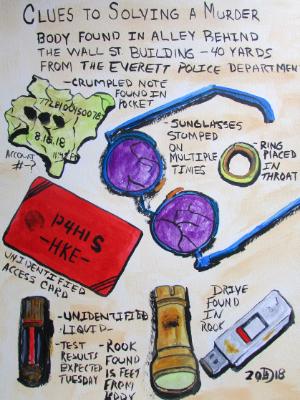 CLUES TO SOLVING A MURDER
BODY FOUND IN ALLEY BEHIND
THE WALL ST. BUILDING - 40 YARDS
FROM THE EVERETT POLICE DEPARTMENT
-CRUMPLED NOTE
FOUND IN
POCKET
8.18.18
ACCOUNT
#-?
-SUNGLASSES
STOMPED
ON
MULTIPLE
TIMES
-RING
PLACED
IN
THROAT
P4HIS
-HKE-
UNIDENTIFIED
ACCESS CARD
-UNIDENTIFIED
LIQUID-
-TEST
RESULTS
EXPECTED
TUESDAY
-ROOK
FOUND
15 FEET
FROM
BODY
DRIVE
FOUND
IN
ROOK